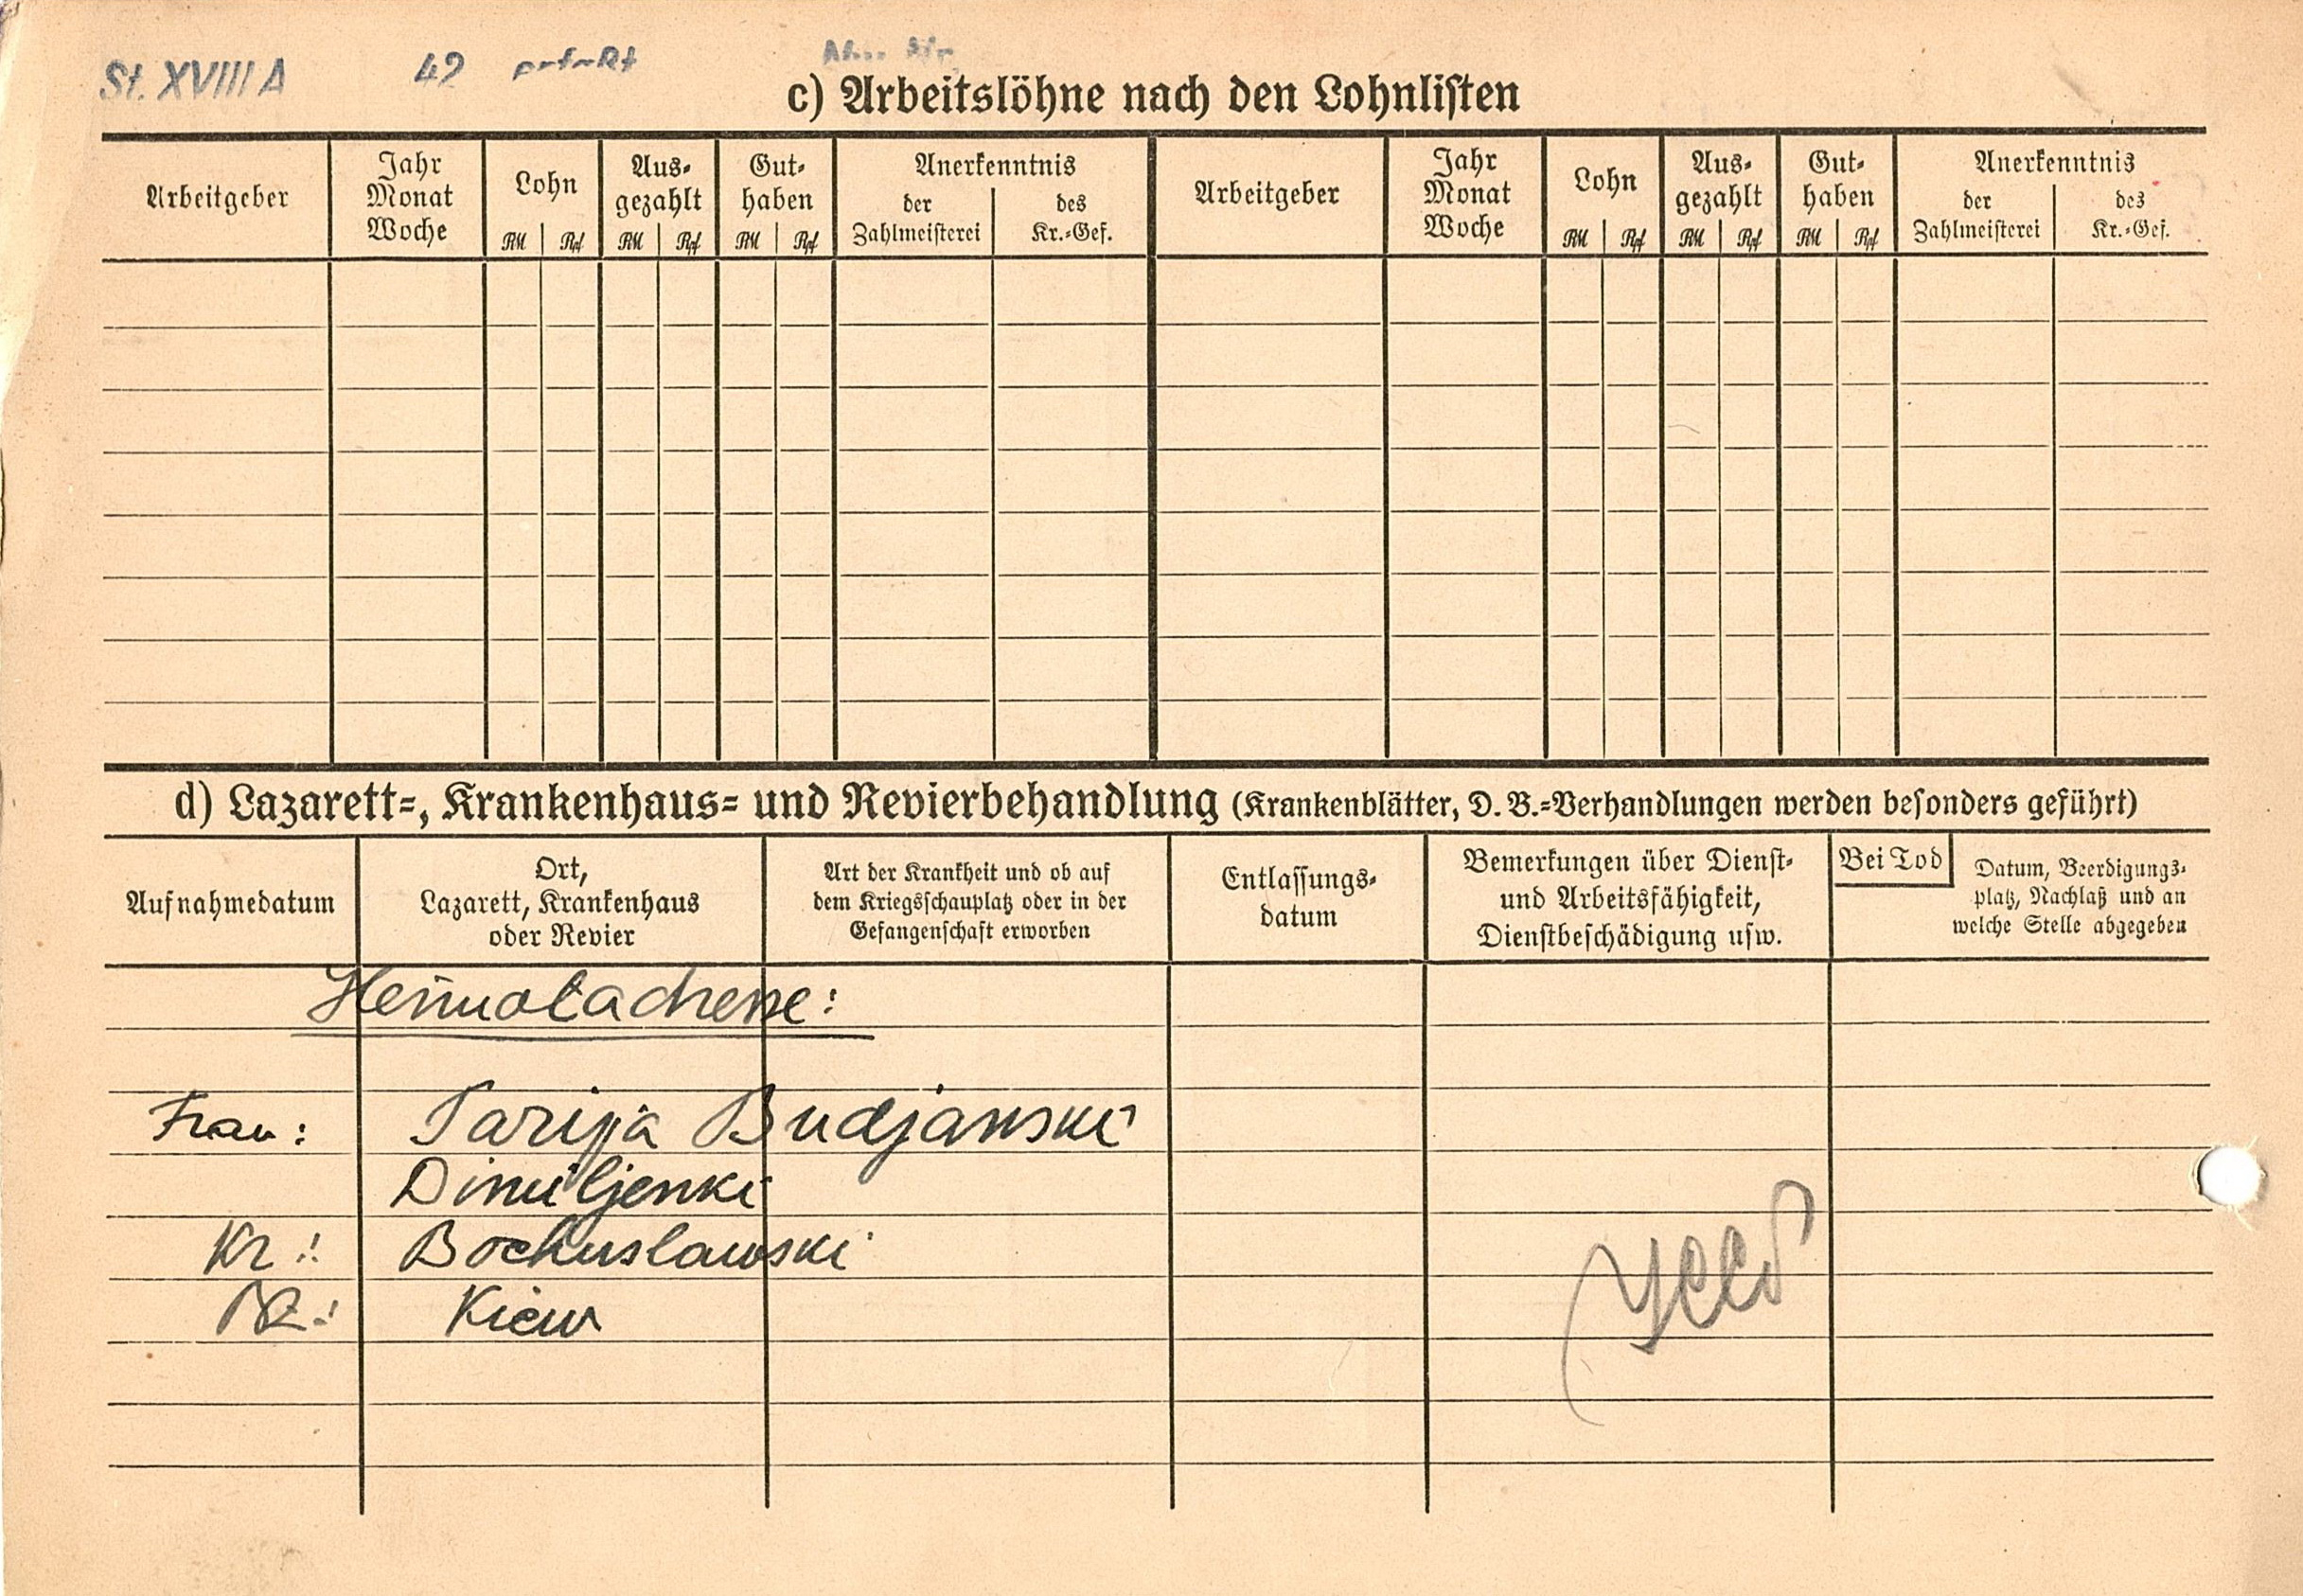 St. XVIII A 42
c) Arbeitslöhne nach den Lohnlisten
Arbeitgeber Jahr Monat Woche Lohn RM Rpf Aus- gezahlt RM Rpf Gut- haben RM Rpf Anerkenntnis der Zahlmeisterei des Kr.-Gef. Arbeitgeber Jahr Monat Woche Lohn RM Rpf Aus- gezahlt RM Rpf Gut- haben RM Rpf Anerkenntnis der Zahlmeisterei des Kr.-Gef.
d) Lazarett-, Krankenhaus- und Revierbehandlung (Krankenblätter, D. B.-Verhandlungen werden besonders geführt)
Aufnahmedatum
Ort,
Lazarett, Krankenhaus
oder Revier
Art der Krankheit und ob auf
dem Kriegsschauplatz oder in der
Gefangenschaft erworben
Entlassungs-
datum
Bemerkungen über Dienst-
und Arbeitsfähigkeit,
Dienstbeschädigung usw.
Bei Tod
Datum, Beerdigungs-
platz, Nachlaß und an
welche Stelle abgegeben
Heimatadresse:
Frau: Tarija Budjanski
Dimiljenki
Kr.: Bochuslawski
Kiew